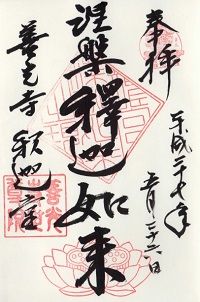 奉拝
平成二十七年
五月二十六日
涅槃釋迦如来
善光寺
釈迦堂